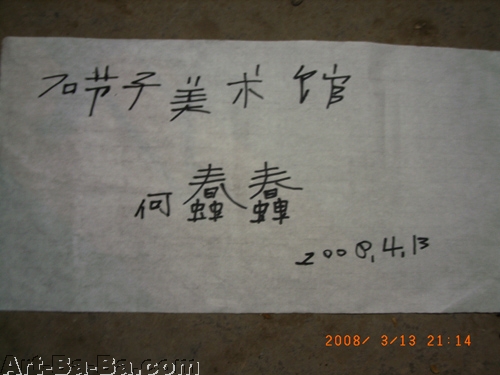 石节子美术馆
何蠢蠢
2008.4.13
2008/ 3/13 21:14
Art-Ba-Ba.com